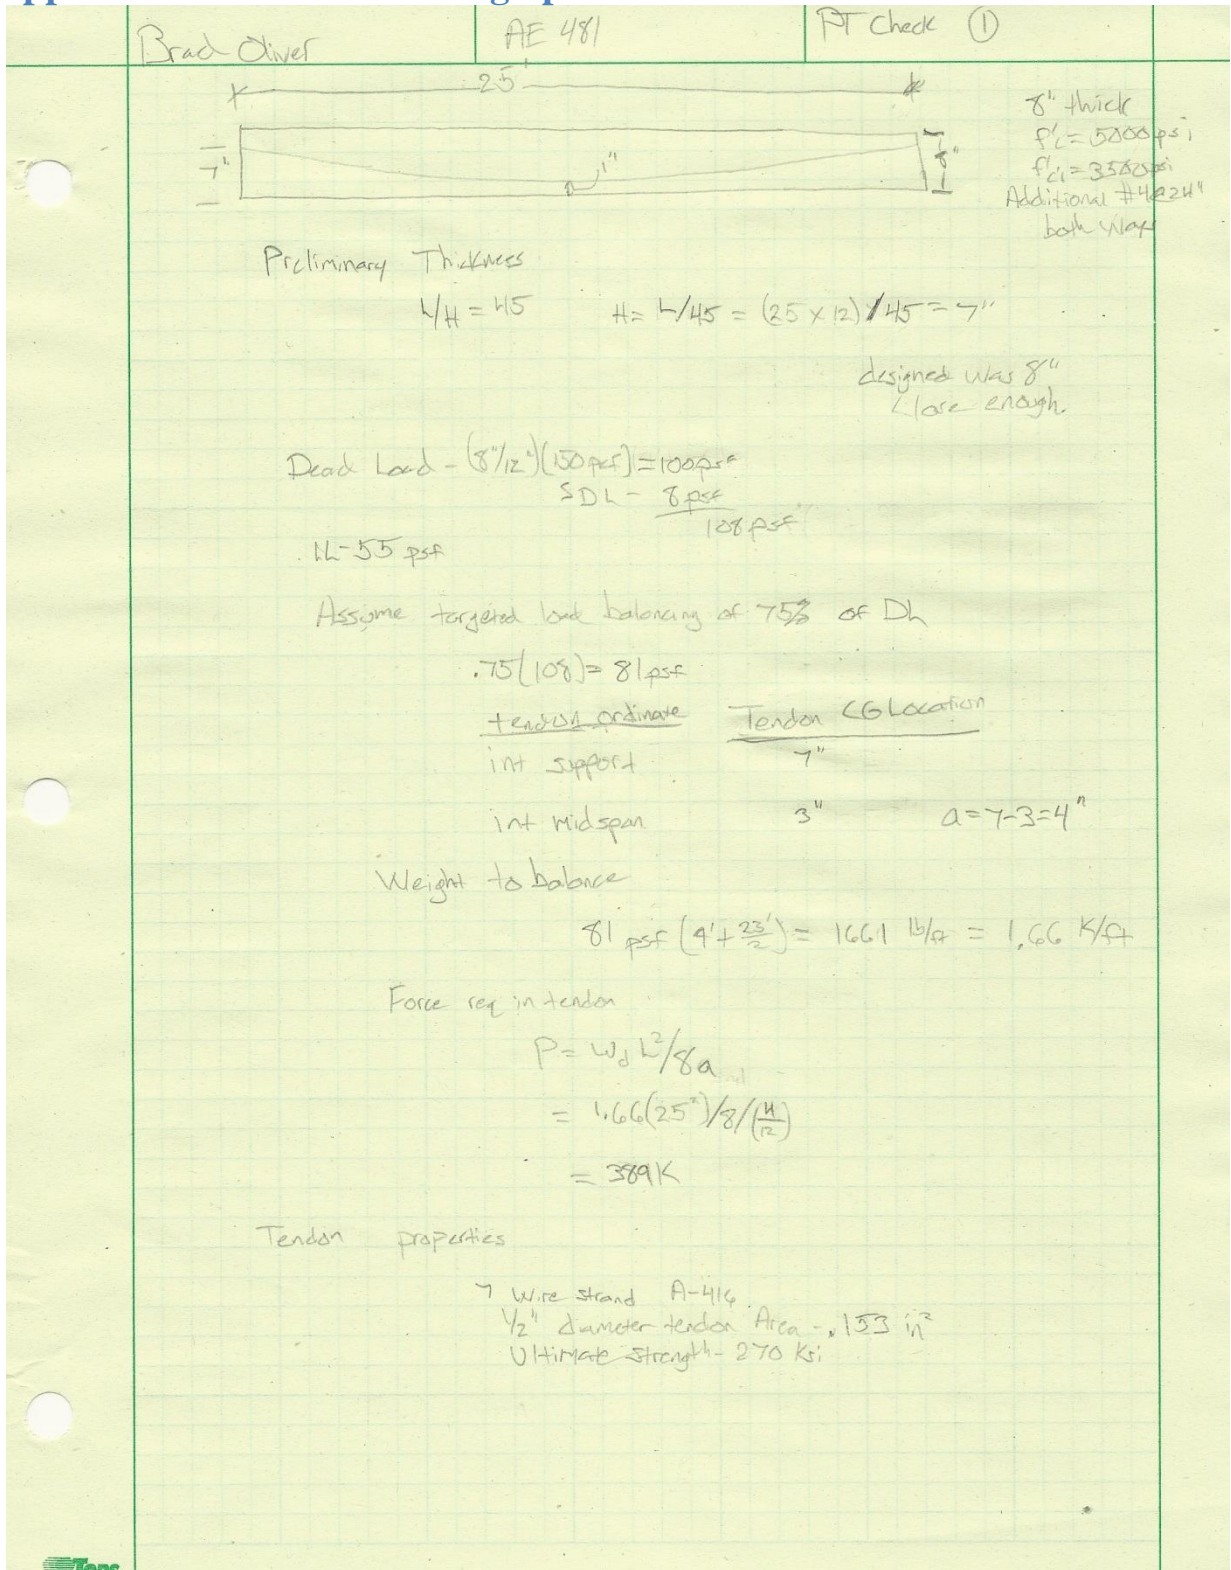 Brad Oliver
AE 481
PT Check ①
25'
8" thick
f'c = 5000 psi
f'ci = 3500 psi
Additional #4@24"
both way
7"
1"
8"
Preliminary Thickness
L/H = 45 H = L/45 = (25 x 12)/45 = 7"
designed was 8"
close enough.
Dead Load - (8"/12")(150 pcf) = 100psf
SDL - 8 psf
108 psf
LL-55 psf
Assume targeted load balancing of 75% of DL
.75(108) = 81psf
tendon ordinate Tendon CG Location
int support 7"
int midspan 3" a = 7-3 = 4"
Weight to balance
81 psf (9' + 23'/2) = 1661 lb/ft = 1.66 K/ft
Force req in tendon
P = wd L²/8a
= 1.66(25²)/8/(4/12)
= 389K
Tendon properties
7 wire strand A-416
1/2" diameter tendon Area - .153 in²
Ultimate Strength - 270 Ksi
Tops